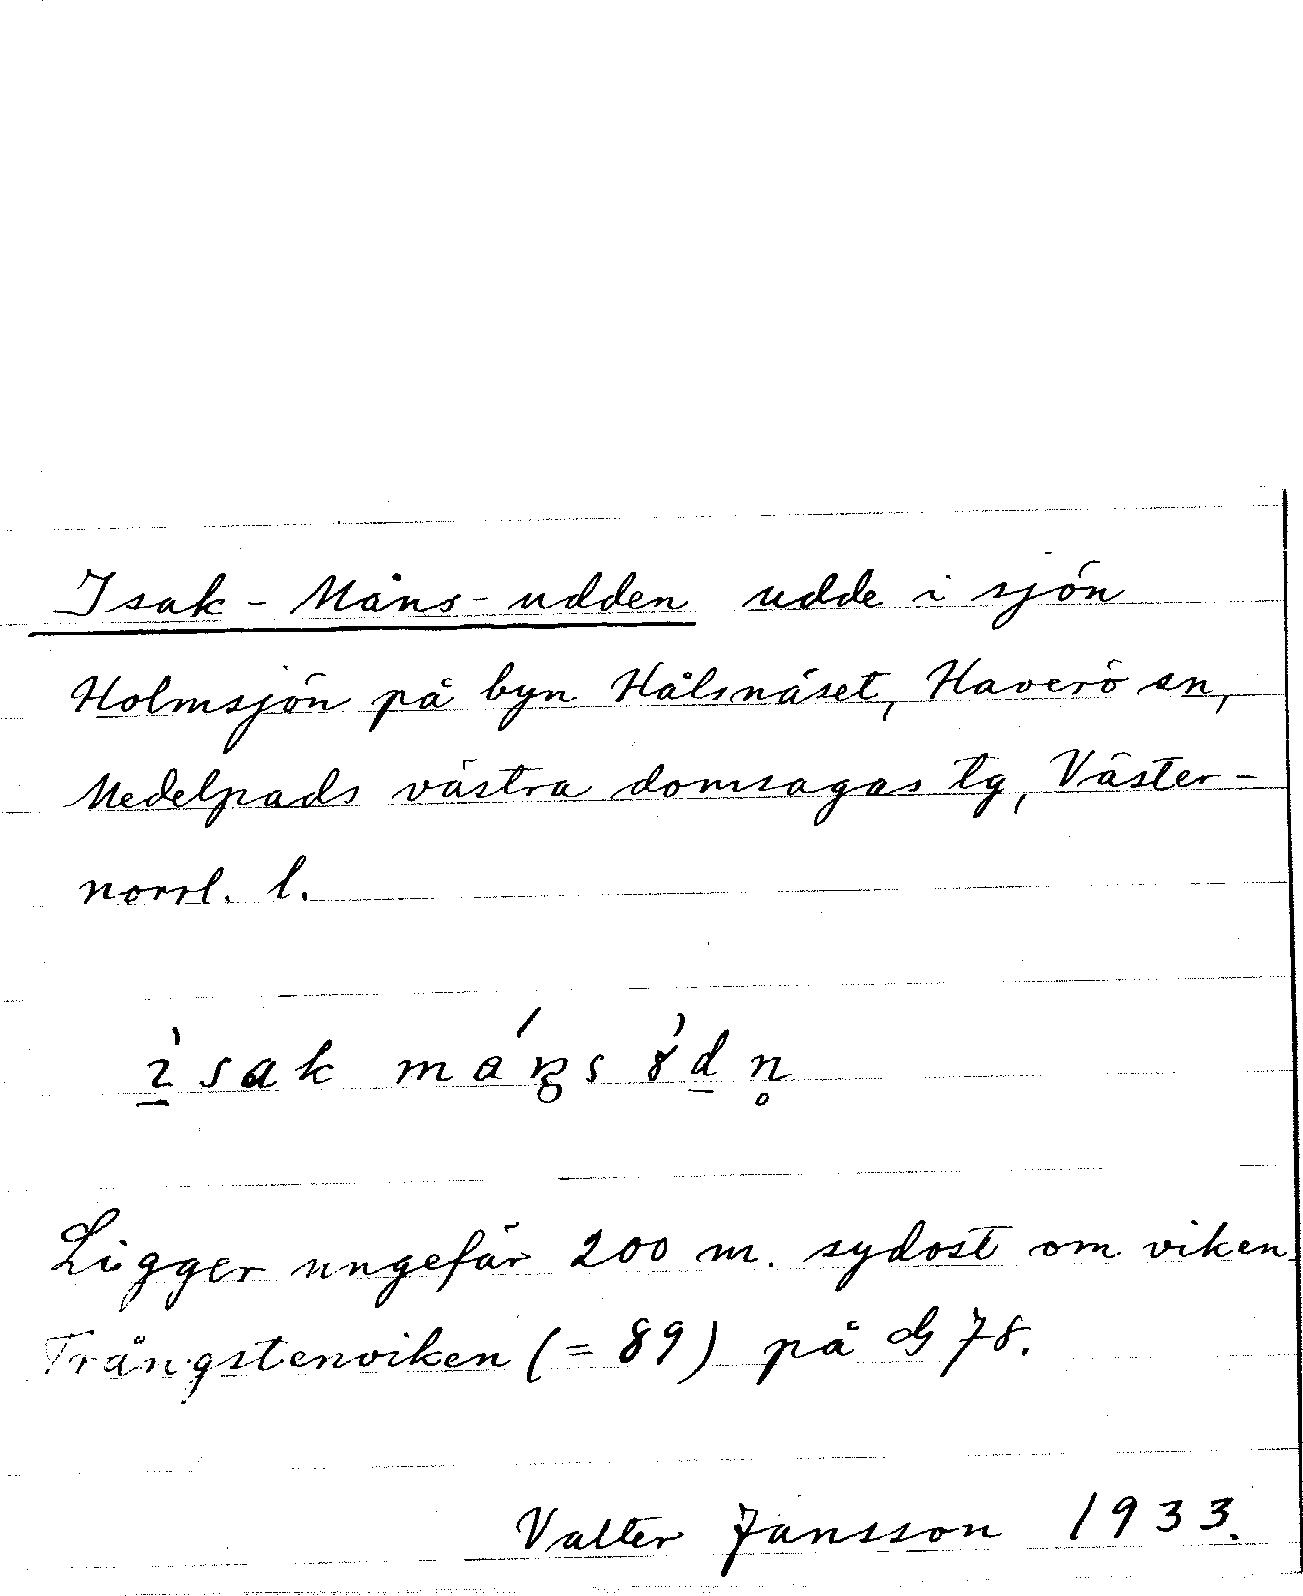 Isak-Måns-udden udde i sjön
Holmsjön på byn Hålsnäset, Haverö sn,
Medelpads västra domsagas tg, Väster-
norrl. l.
Ligger ungefär 200 m. sydost om viken
Trångstenviken (= 89) på G 78.
Valter Jansson 1933.